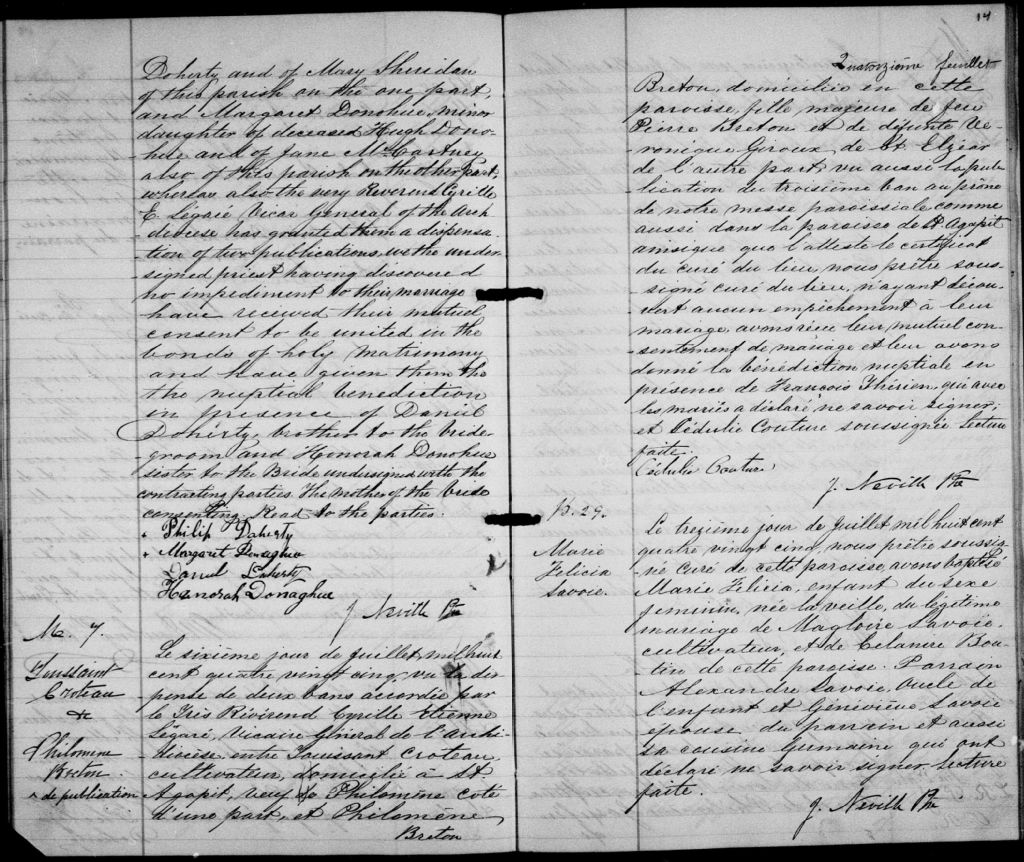 Doherty and of Mary Sheridan
of this parish on the one part,
and Margaret Donohue, minor
daughter of deceased Hugh Dono-
hue and of Jane McCartney
also of this parish on the other part,
whereas also the very Reverend Cyrille
E. Légaré Vicar General of the Arch
diocese has granted them a dispensa-
-tion of two publications, we the under-
signed priest having discovered
no impediment to their marriage
have received their mutual
consent to be united in the
bonds of holy matrimony
and have given them the
the nuptial benediction
in presence of Daniel
Doherty, brother to the bride-
groom and Honorah Donohue
sister to the Bride undersigned with the
contracting parties. The mother of the bride
consenting. Read to the parties.
+ Philip Daherty
+ Margaret Donaghue
Daniel Daherty
Hanorah Donaghue
J. Neville Ptre
M. 7.
Toussaint
Croteau
&
Philomène
Breton
^ de publication
Le sixième jour de Juillet, mil huit
cent quatre vingt cinq, vu la dis
pense de deux bans accordée par
le Très Révérend Cyrille Etienne
Légaré, Vicaire Général de l'Archi
diocèse, entre Touissant Croteau
cultivateur, domicilié à St
Agapit, veuf de Philomène Coté
d'une part, et Philomène,
Breton
14
Quatorzième feuillet
Breton, domiciliée en cette
paroisse, fille majeure de feu
Pierre Breton et de défunte Ve-
-ronique Giroux, de St Elzéar
de l'autre part, vu aussi la pub-
-lication du troisième ban au prône
de notre messe paroissiale comme
aussi dans la paroisse de St Agapit
ainsique que l'atteste le certificat
du curé du lieu, nous prêtre sous-
-signé curé du lieu, n'ayant décou-
-vert aucun empêchement à leur
mariage, avons reçu leur mutuel con-
-sentement de mariage et leur avons
donné la bénédiction nuptiale en
présence de François Thérien, qui avec
les mariés a déclaré ne savoir signer,
et Cédulie Couture soussignée. Lecture
faite.
Cédulie Couture
J. Neville Ptre
B. 29.
Marie
Felicia
Savoie.
Le treizième jour de Juillet mil huit cent
quatre vingt cinq, nous prêtre soussig-
-né curé de cette paroisse, avons baptisé
Marie Felicia, enfant du sexe
feminin, née la veille, du légitime
mariage de Magloire Savoie,
cultivateur, et de Celanire Bou-
-tin de cette paroisse. Parrain
Alexandre Savoie, Oncle de
l'enfant et Géneviève Savoie
epouse du parrain et aussi
sa cousine Germaine qui ont
déclaré ne savoir signer. Lecture
faite.
J. Neville Ptre